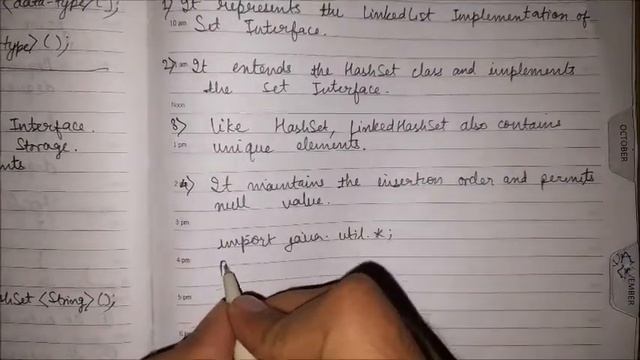 <data-type>();
type>();
Interface.
Storage.
nts
shSet <String>();
1) It represents the LinkedList Implementation of
10 am
Set Interface.
2) It entends the HashSet class and implements
the set Interface.
Noon
3) like HashSet, LinkedHashSet also contains
1 pm
unique elements.
4) It maintains the insertion order and permits
null value.
3 pm
import java. util.*;
4 pm
5 pm
OCTOBER
EMBER